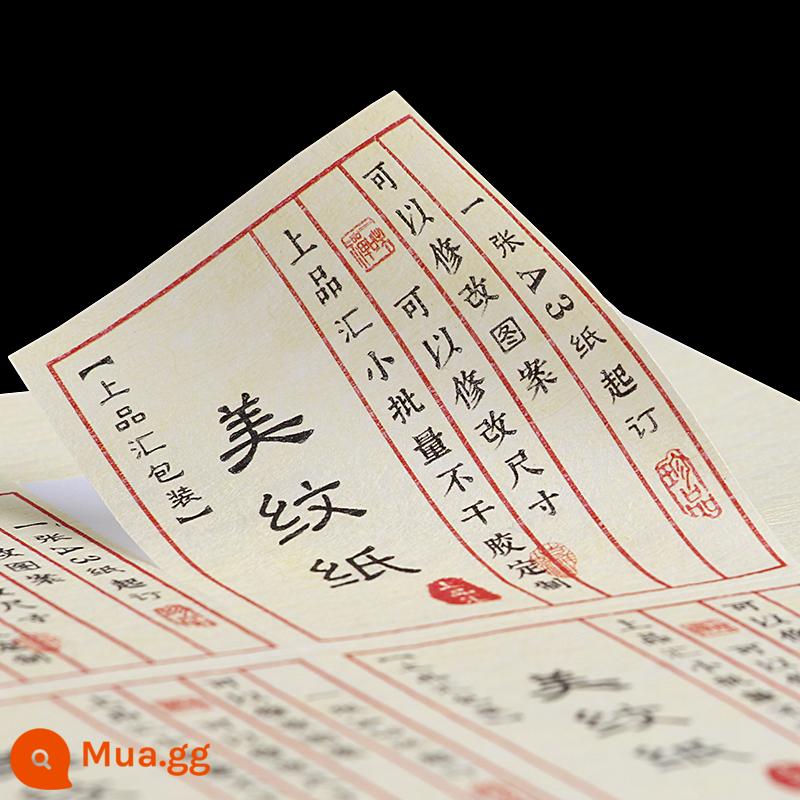 一张A3纸起订
珍品
可以修改图案
可以修改尺寸
上品汇小批量不干胶定制
美纹纸
上品汇
【上品汇包装】
一张A3纸起订
改图案
尺寸
可以
可以
上品汇小批量
美纹纸
Mua.gg